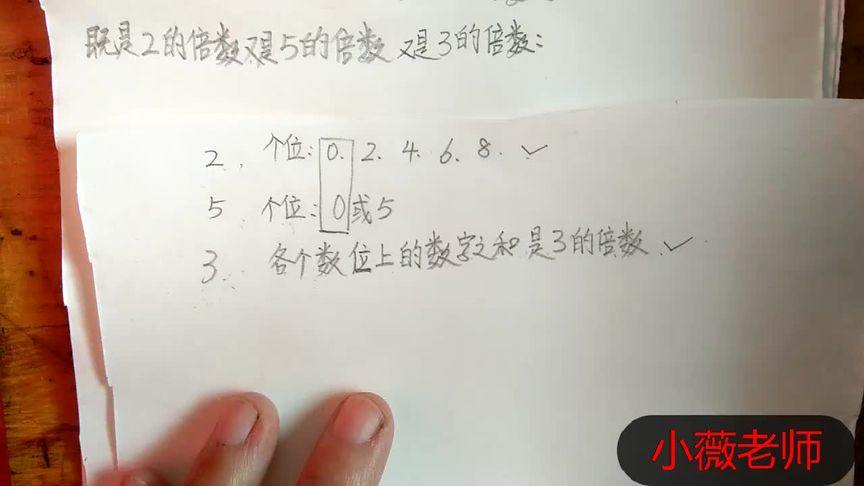 既是2的倍数又是5的倍数 又是3的倍数:
2. 个位: 0. 2. 4. 6. 8. ✓
5 个位: 0或5
3. 各个数位上的数字之和是3的倍数. ✓
小薇老师